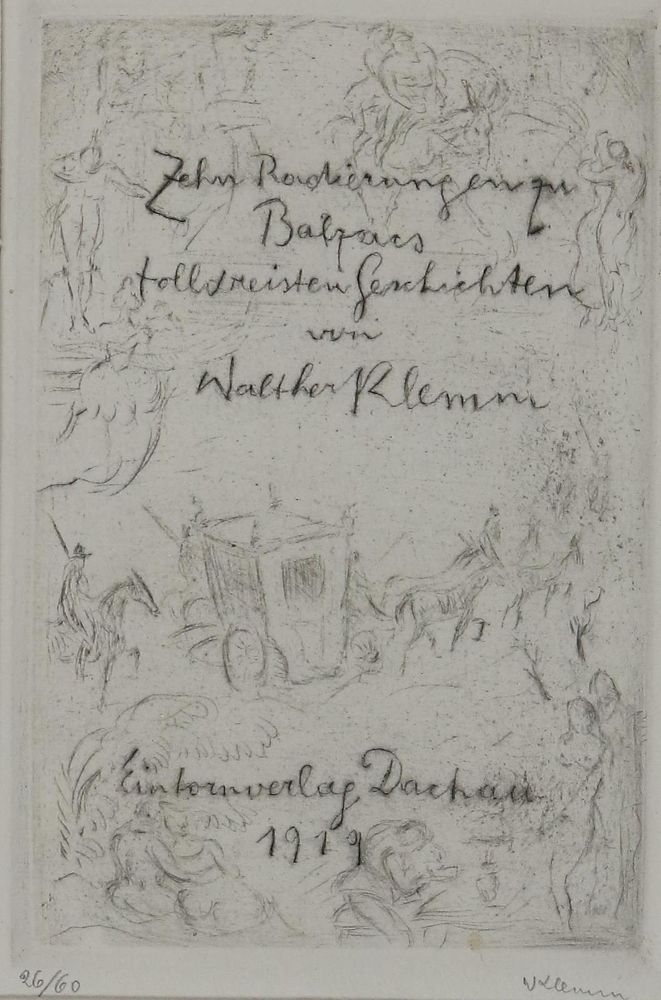 Zehn Radierungen zu
Balzacs
tolldreisten Geschichten
von
Walther Klemm
Einhornverlag Dachau
1919
26/60
WKlemm